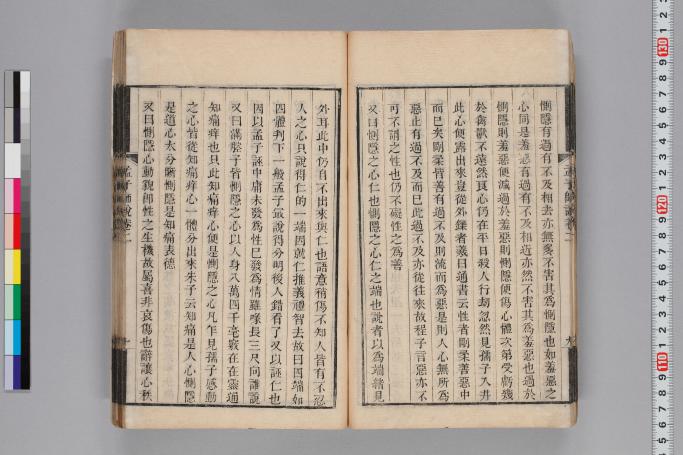 惻隱有過有不及相去亦無多不害其為惻隱也如羞惡之
心同是羞惡有過有不及相遠亦然不害其為羞惡也過於
惻隱則羞惡便減過於羞惡則惻隱便傷心體次第受虧殘
於禽獸不遠然良心仍在平日殺人行劫忽然見孺子入井
此心便露出來豈從外鑠者裁曰通書云性者剛柔善惡中
而已矣剛柔皆善有過不及則流而為惡是則人心無所為
惡止有過不及而已此過不及亦從性來故程子言惡亦不
可不謂之性也仍不礙性之為善
又曰惻隱之心仁也惻隱之心仁之端也說者以為端緒見
外耳此中仍自不出來與仁也語意稍傷不知人皆有不忍
人之心只說得仁的一端因就仁推義禮智去故曰四端如
四體判下一般孟子最說得分明後人錯看了又以誣仁也
因以孟子誣中庸未發為性已發為情雖喙長三尺向誰說
又曰滿腔子皆惻隱之心以人身八萬四千毫竅在在靈通
知痛癢也只此知痛癢心便是惻隱之心凡乍見孺子感動
之心皆從知痛癢心一體分出來朱子云知痛是人心惻隱
是道心太分晰惻隱是知痛表德
又曰惻隱心動貌即性之生機故屬喜非哀傷也辭讓心秩
孟子師說卷二